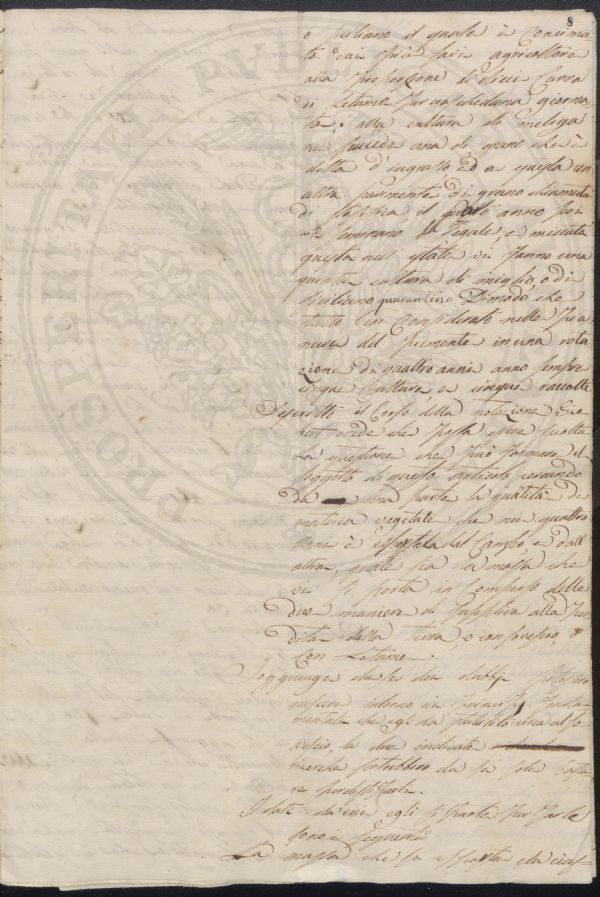 8
o siciliano il quale è concima
to dai più savi agricoltori
alla proporzione di dieci carra
di Letame per ciascheduna giorna
ta; alla cultura di meliga
ne succede una di grano che è
detta d'ingrasso ed a questa un
altra parimente di grano chiamata
di stoppia, il quarto anno poi
vi seminano la segale, e mietuta
questa nell'estate vi fanno una
quinta cultura di miglio, o di
siciliano quarantino Dimodo, che
tutto ben considerato nelle
del Piemonte in una rota
zione di quattro anni
cinque culture, e cinque raccolte
Descritto il corso della rotazione Gio
bert crede che possa essere sciolta
la questione che può formare il
soggetto di questo articolo cercando
da una parte la quantità di
materia vegetale che nei quattro
anni è esportata dal Campo, e dall'
altra, quale sia la massa che
vi si porta in compenso delle
due maniere di supplire alla per
dita della terra, o con sovescio, o
con Letame.
Soggiunge che se dei dubbj potessero
nascere intorno ai principj fonda
mentali che egli ha stabilito circa al so
vescio, le due indicate
ricerche potrebbero da se sole basta
re per dissiparli.
I dati da cui egli si parte per farle
sono i seguenti
La massa che si esporta da cias